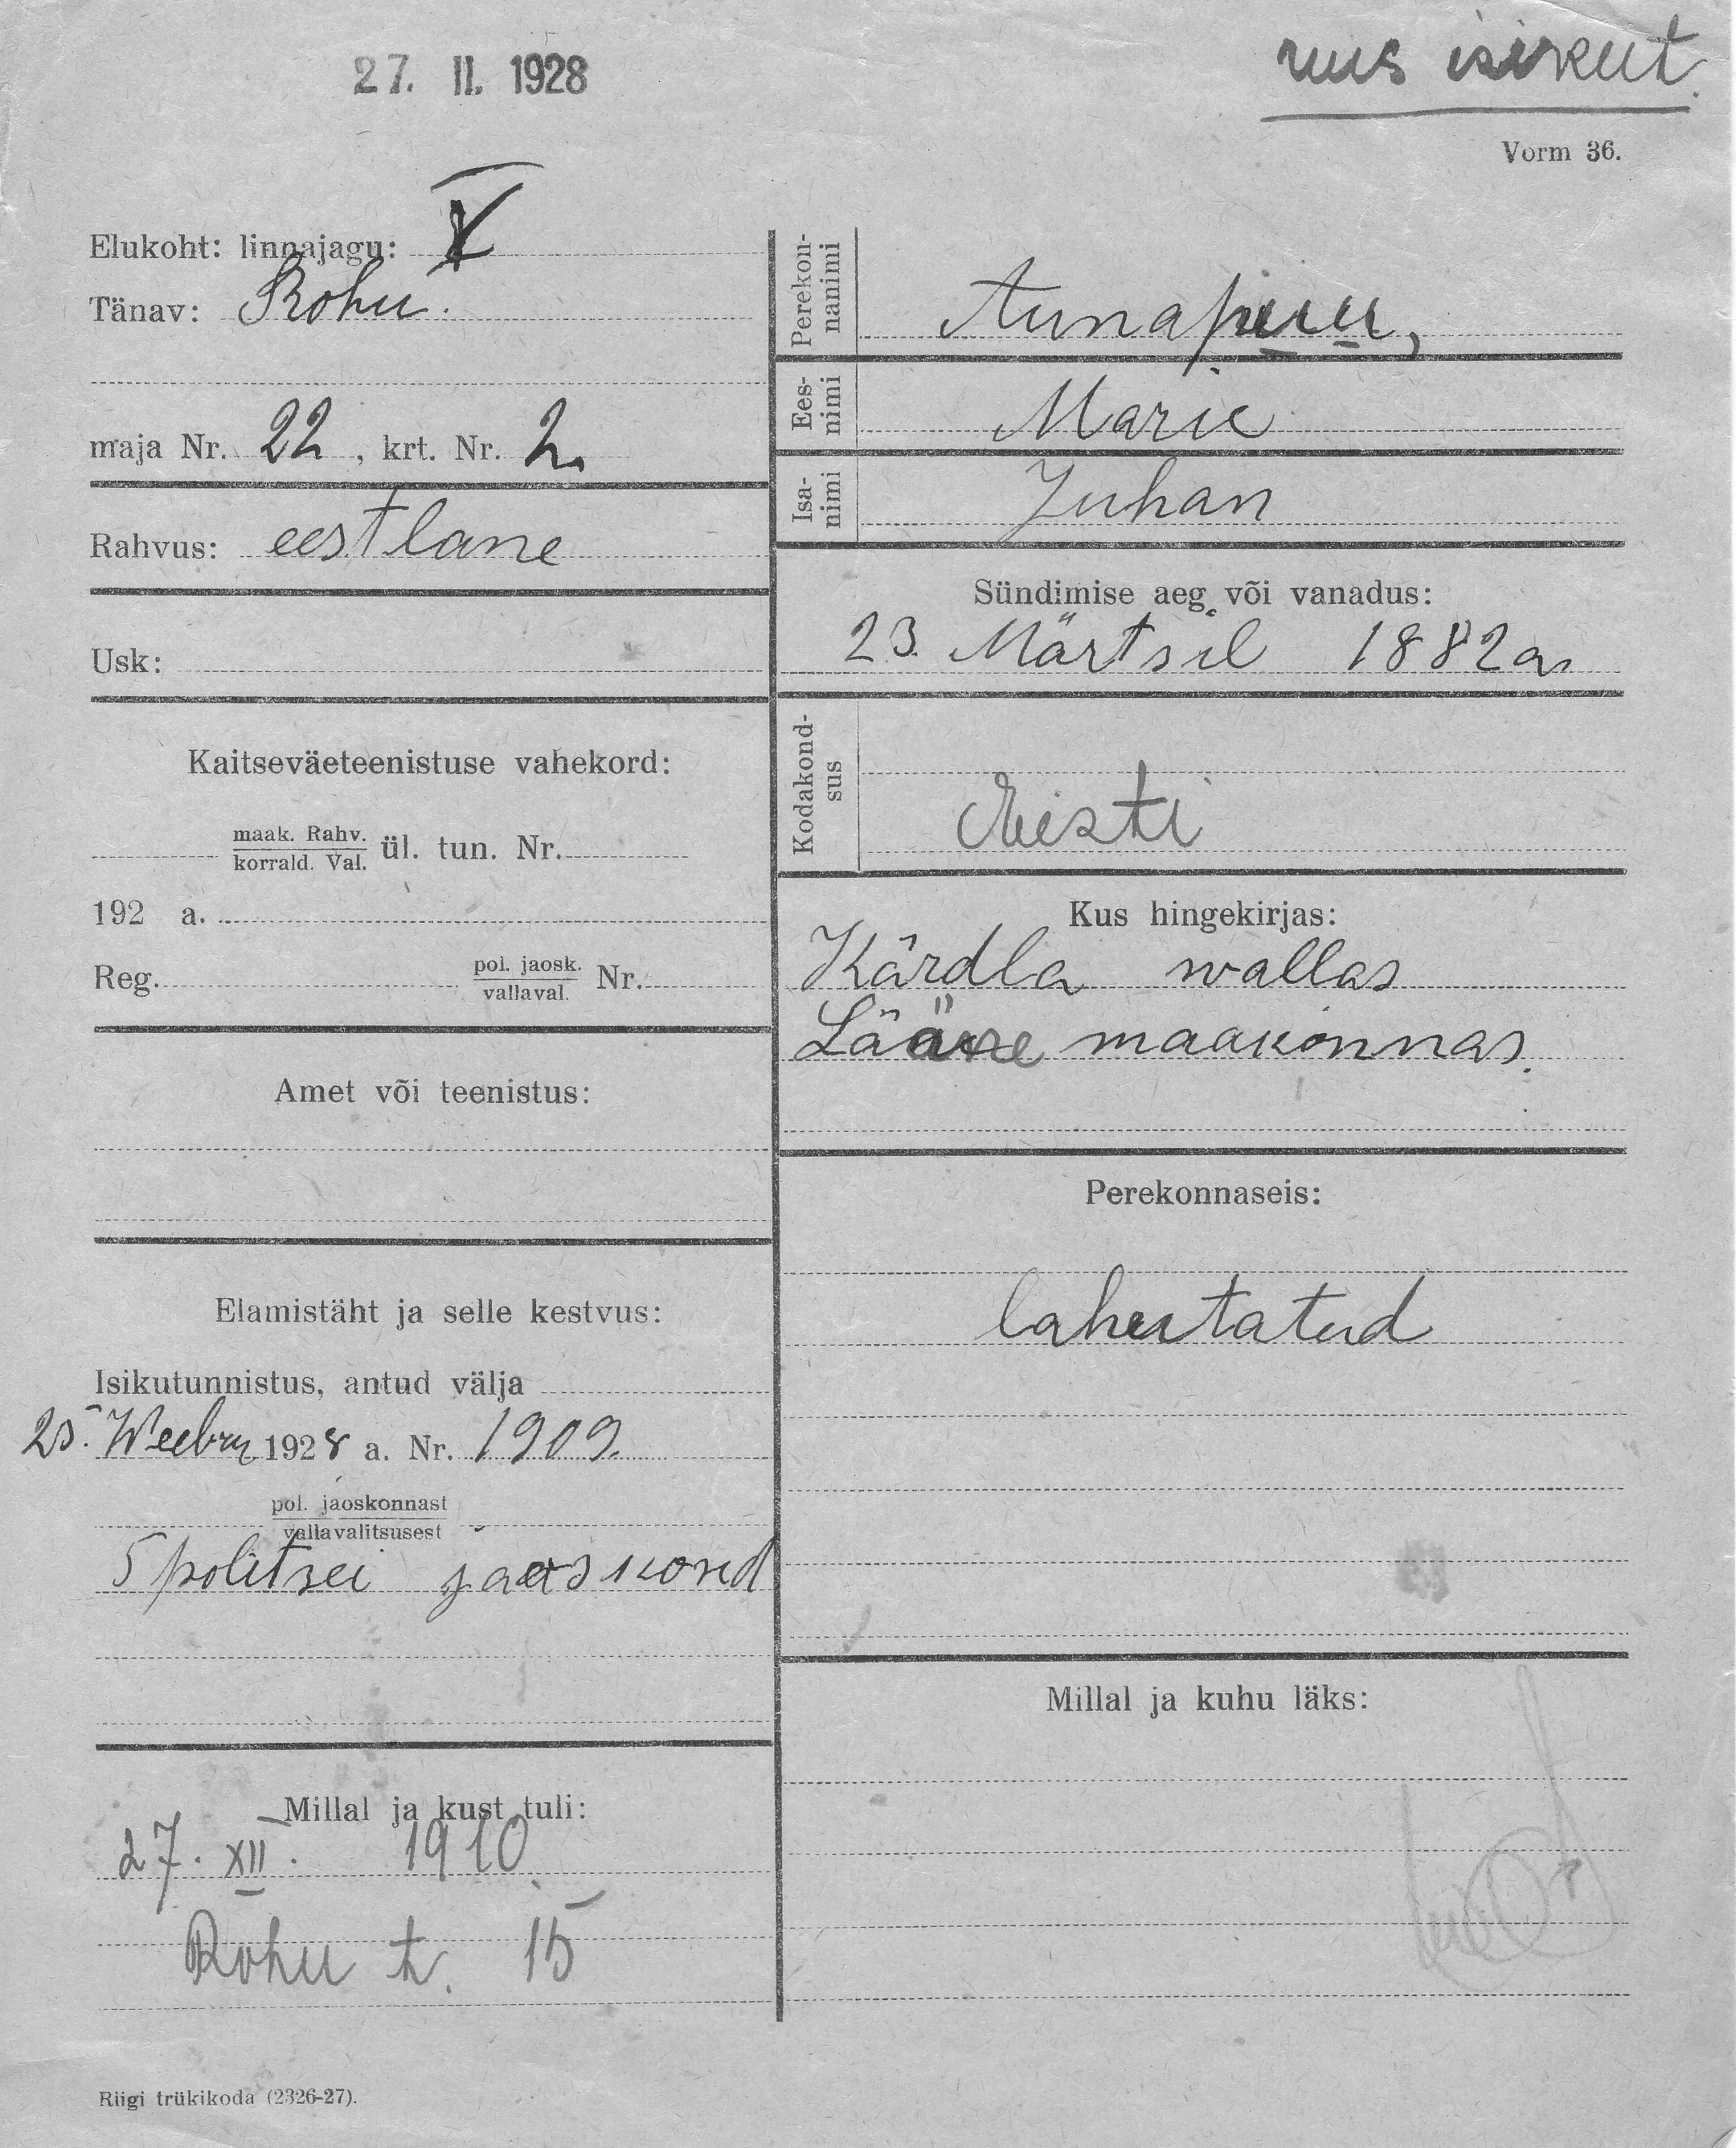 27. II. 1928
uus isikut.
Vorm 36.
Elukoht: linnajagu: V
Tänav: Rohu.
maja Nr. 22, krt. Nr. 2.
Rahvus: eestlane
Usk:
Kaitseväeteenistuse vahekord:
maak. Rahv.
korrald. Val. ül. tun. Nr.
192 a.
Reg. pol. jaosk. Nr.
vallaval.
Amet või teenistus:
Elamistäht ja selle kestvus:
Isikutunnistus, antud välja
25. Weebru 1928 a. Nr. 1909.
pol. jaoskonnast
vallavalitsusest
5 politsei jaoskond
Millal ja kust tuli:
27. XII. 1910.
Rohu t. 15
Riigi trükikoda (2326-27).
Perekon-
nanimi
Aunapuu,
Ees-
nimi
Marie
Isa-
nimi
Juhan
Sündimise aeg või vanadus:
23. Märtsil 1882 a.
Kodakond-
sus
Eesti
Kus hingekirjas:
Kärdla wallas
Lääne maakonnas.
Perekonnaseis:
lahutatud
Millal ja kuhu läks: